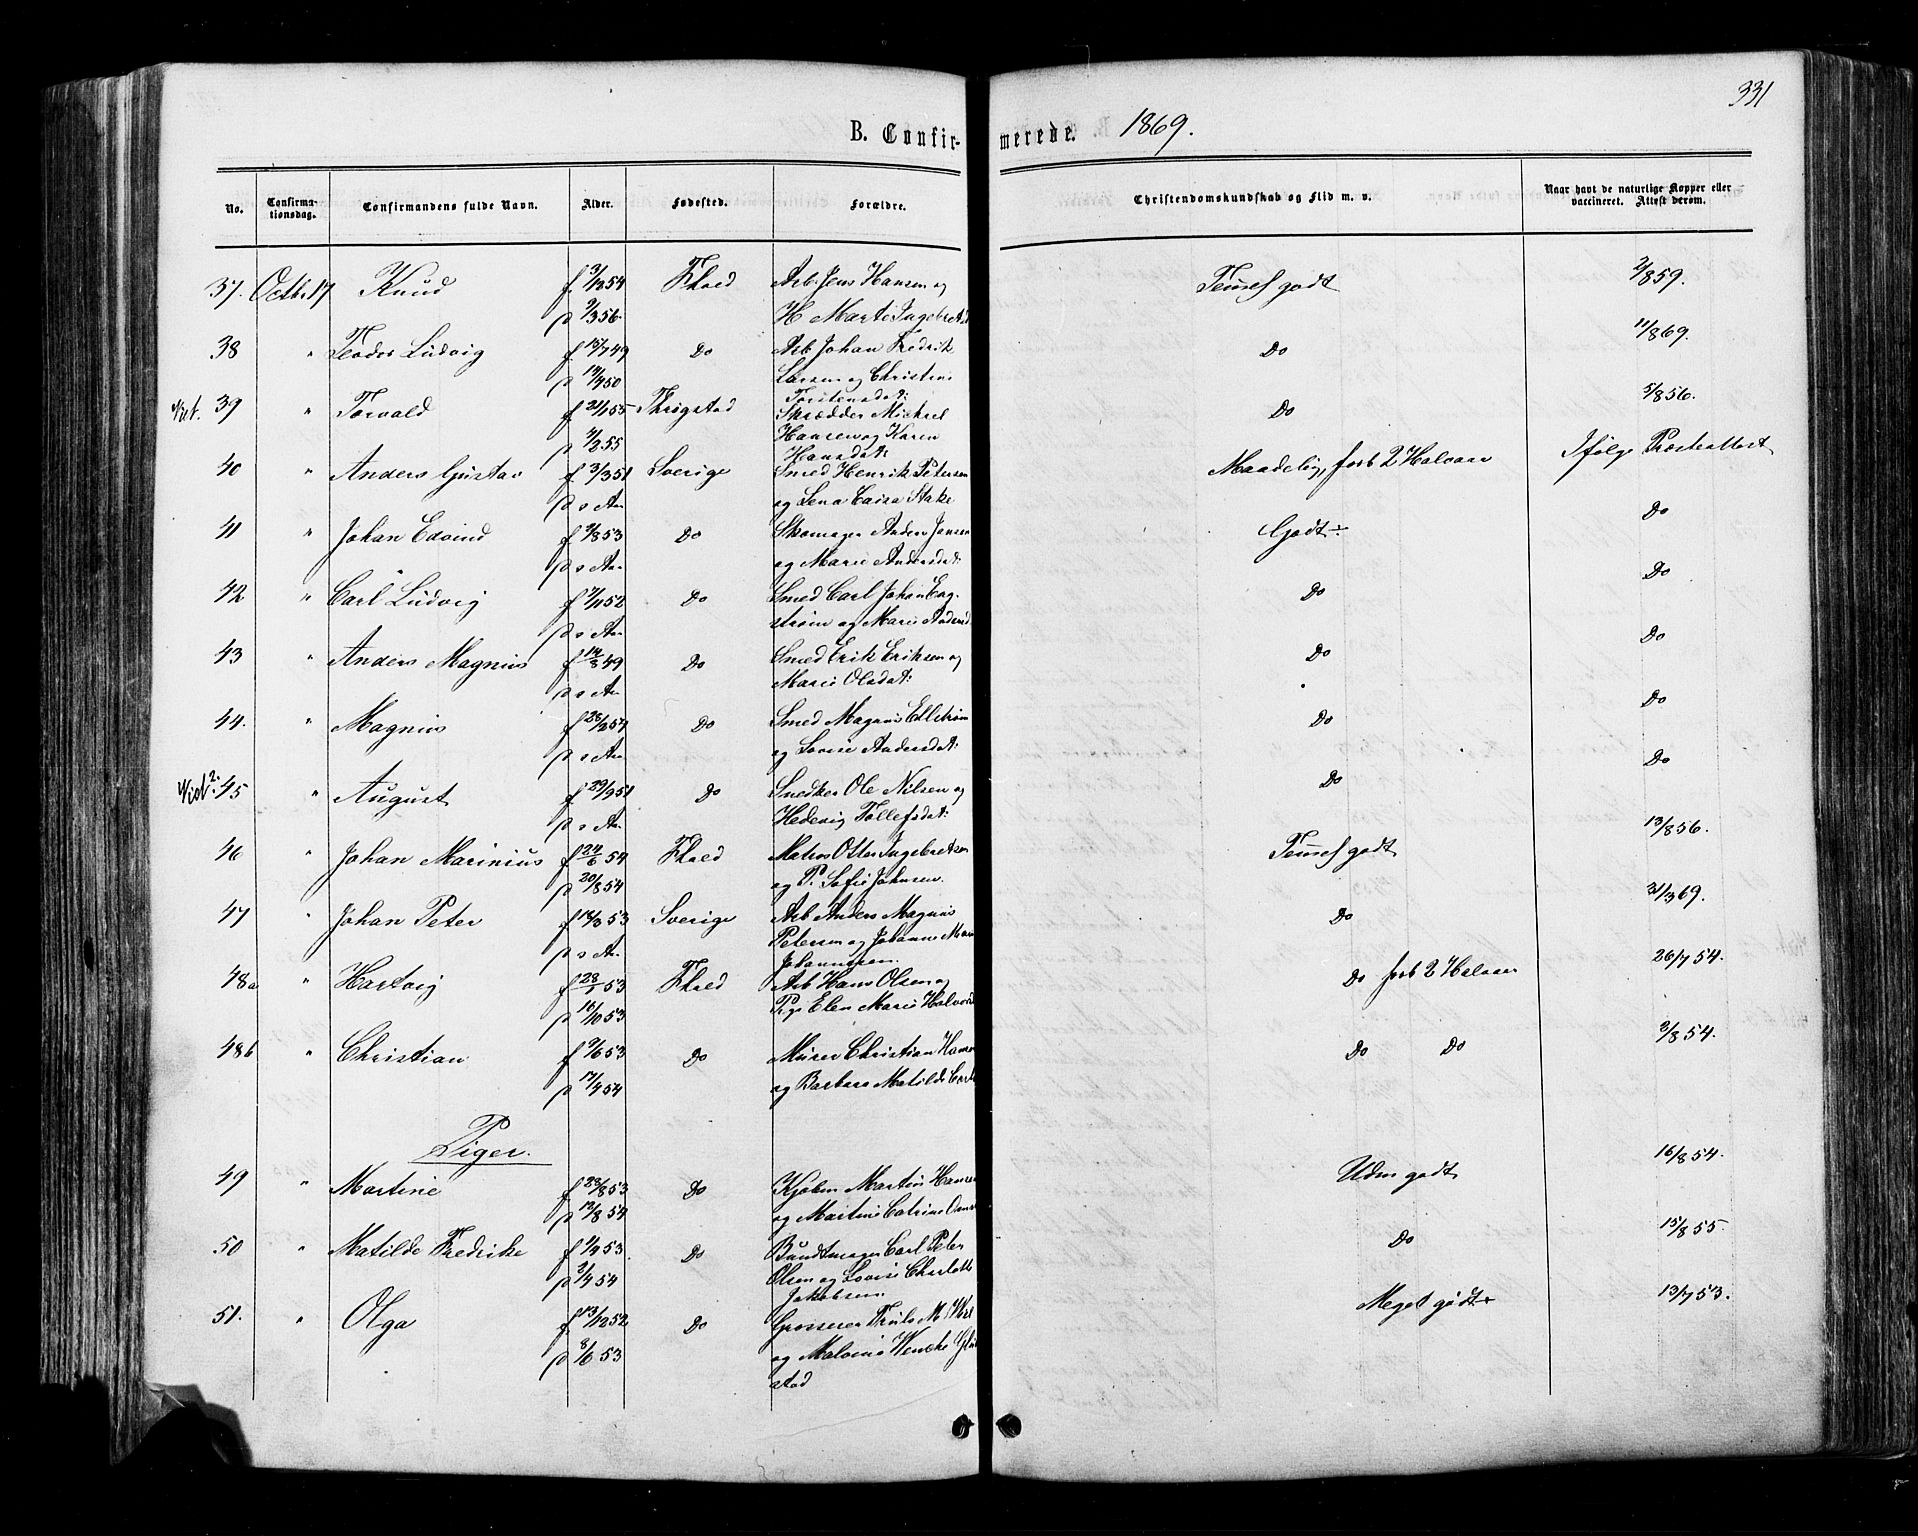 331
B. Confir- merede. 1869.
No. Confirmationsdag. Confirmandens fulde Navn. Alder. Fødested. Forældre. Christendomskundskab og Flid m. v. Naar havt de naturlige Kopper eller vaccineret. Attest derom.
37. Octb. 17 Knud f 3/12 54 Fhald Arb. Jens Hansen og Temel godt 2/8 59.
p 9/3 56. H. Marte Ingebretsd
38 " Teodor Ludvig f 15/7 49 Do Arb Johan Fredrik Do 11/8 69.
p 14/4 50 Larsen og Christine
Torstensdat:
39 " Torvald f 21/1 55 Thrøgstad Skrædder Mickel Do 5/8 56.
p 4/2 55 Hansen og Karen
Hansdat:
40 " Anders Gustav f 3/3 51 Sverige Smed Henrik Petersen Maadelig, forb 2 Halvaar Ifølge Præsteattest
p s A. og Lena Caisa Stake
41 " Johan Edvind f 9/8 53 Do Skomager Anders Jansen Godt ÷ Do
p s A. og Marie Andersdat:
42 " Carl Ludvig f 7/11 52 Do Smed Carl Johan Eng- Do Do
p s A. strøm og Marie
43 " Anders Magnus f 14/8 49 Do Smed Erik Eriksen og Do Do
p s A. Marie Olsdat:
44. " Magnus f 28/2 54 Do Smed Magnus Ellstrøm Do Do
p s A. og Lovise Andersdat:
45 " August f 29/9 51 Do Snedker Ole Nilsen og Do Do
p s A. Hedevig Tollefsdat:
46 " Johan Marinius f 24/6 54 Fhald Matros Otter Ingebretsen Temel godt 13/8 56.
p 20/8 54 og P. Sofie Johnsen.
47 " Johan Peter f 18/3 53 Sverige Arb Anders Magnus Do 31/3 69.
p s A. Petersen og Johanne
Johannesen.
48a " Hartvig f 28/1 53 Fhald Arb Hans Olsen og Do forb 2 Halvaar 26/7 54.
p 16/10 53 Pige Elen Marie Halvord
48b " Christian f 9/6 53 Do Murer Christian Hansen Do Do 2/8 54.
p 17/4 54 og Barbara Matilde
Piger.
49 " Martine f 23/8 53 Do Kjøbm Martin Hansen Udm godt 16/8 54.
p 13/8 54 og Martine Catrine
50 " Matilde Fredrike f 1/9 53. Do Buntmager Carl Peter Do 15/8 55
p 2/4 54 Olsen og Lovise Charlotte
Jakobsen
51. " Olga f 13/12 52 Do Grosserer Truls M. Wiel Meget godt 13/7 53.
p 8/6 53 og Malvine Wencke
stad